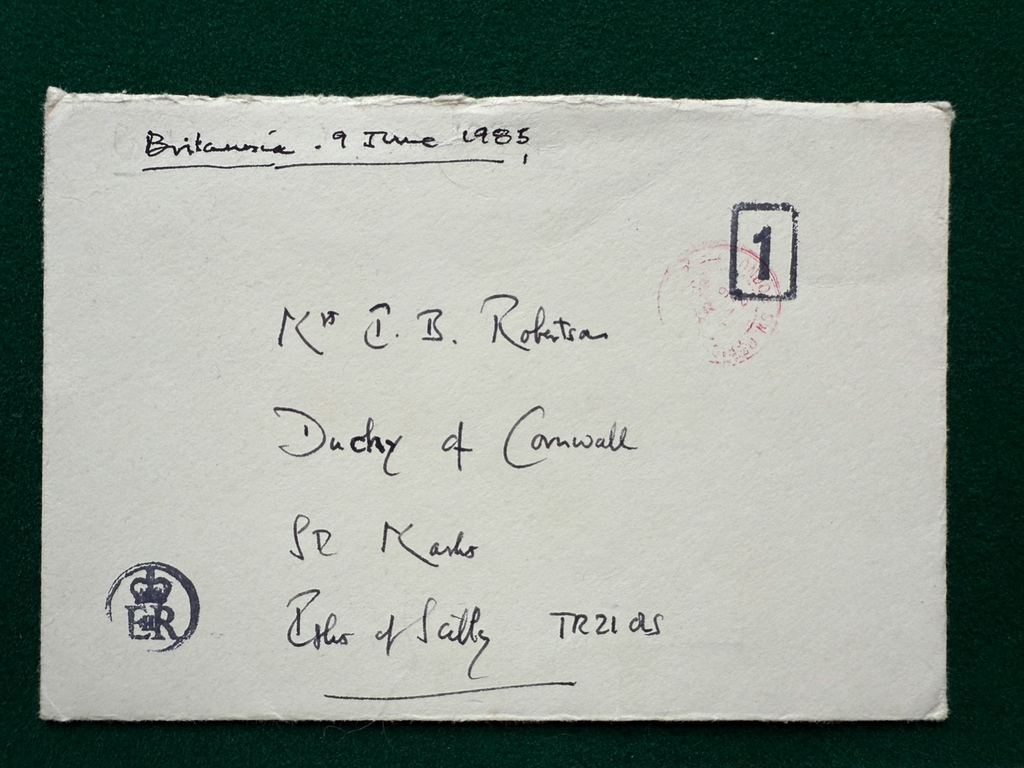 Britannia . 9 June 1985
1
Mr C. B. Robertson
Duchy of Cornwall
St Marks
Isles of Scilly TR21 0LS
EIIR